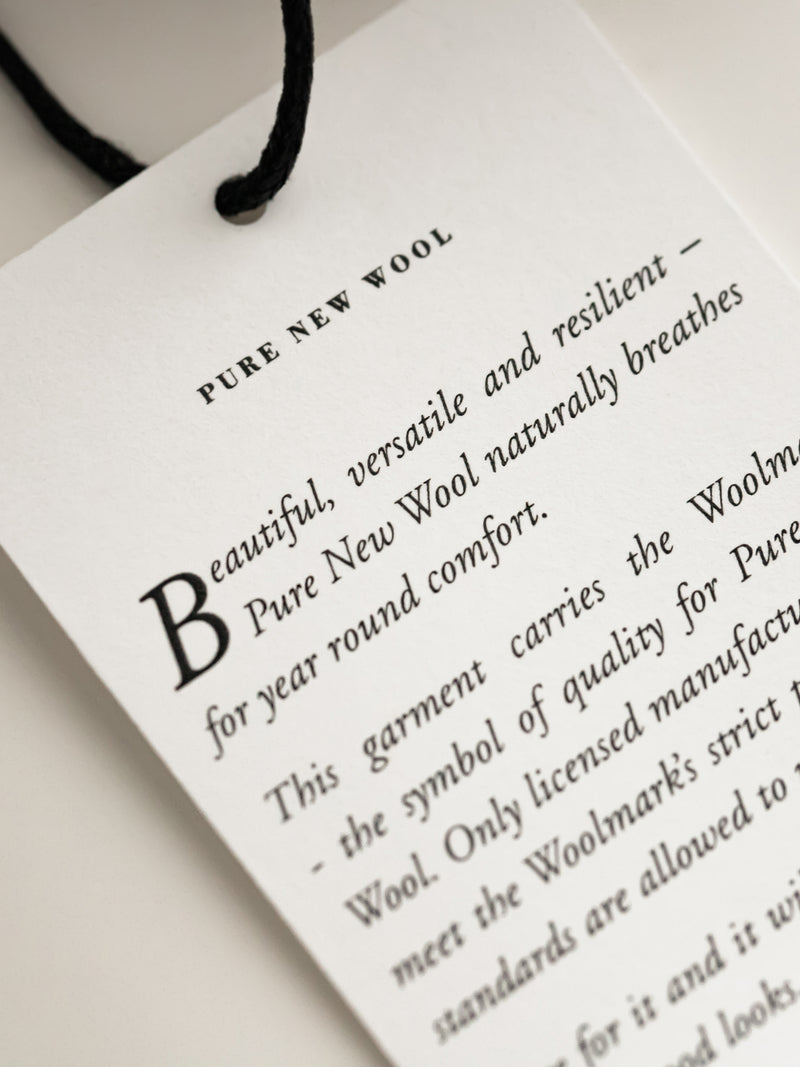 PURE NEW WOOL
Beautiful, versatile and resilient –
Pure New Wool naturally breathes
for year round comfort.
This garment carries the
- the symbol of quality for Pure
Wool. Only licensed
meet the Woolmark's strict
standards are allowed to
for it and it
looks